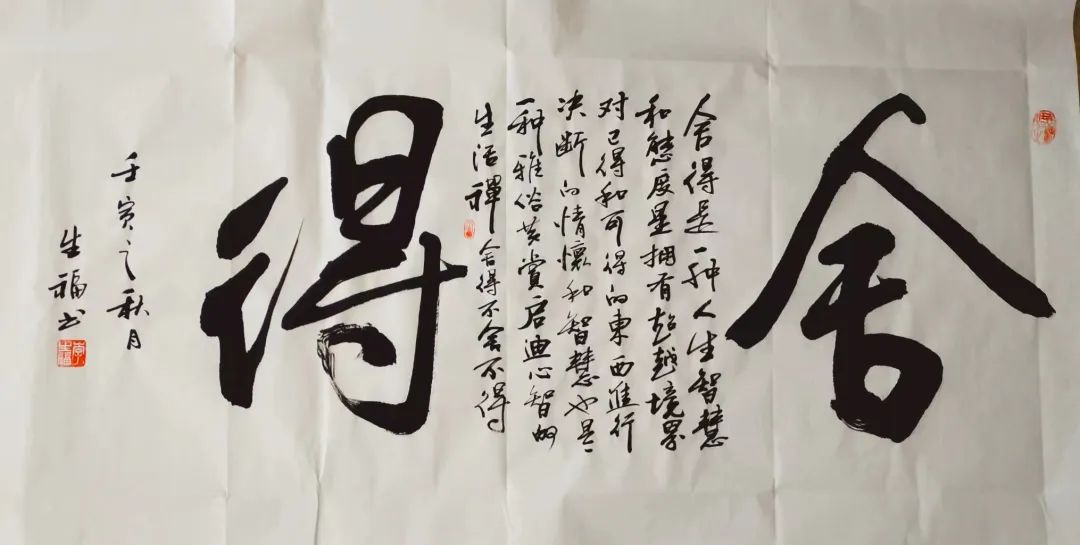 舍
舍得是一种人生智慧
和态度是拥有超越境界
对已得和可得的东西进行
决断的情怀和智慧也是
一种雅俗共赏启迪心智的
生活禅 舍得不舍不得
得
壬寅之秋月
生福书